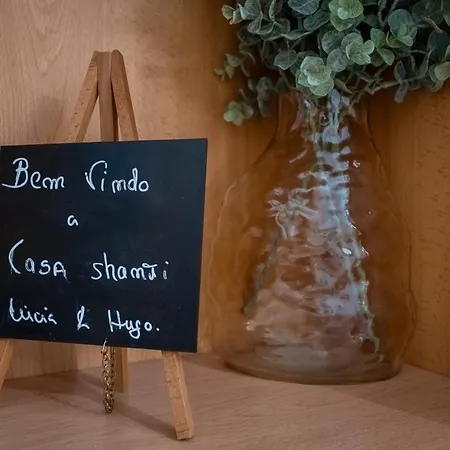 Bem Vindo
a
Casa shanti
Lúcia & Hugo.